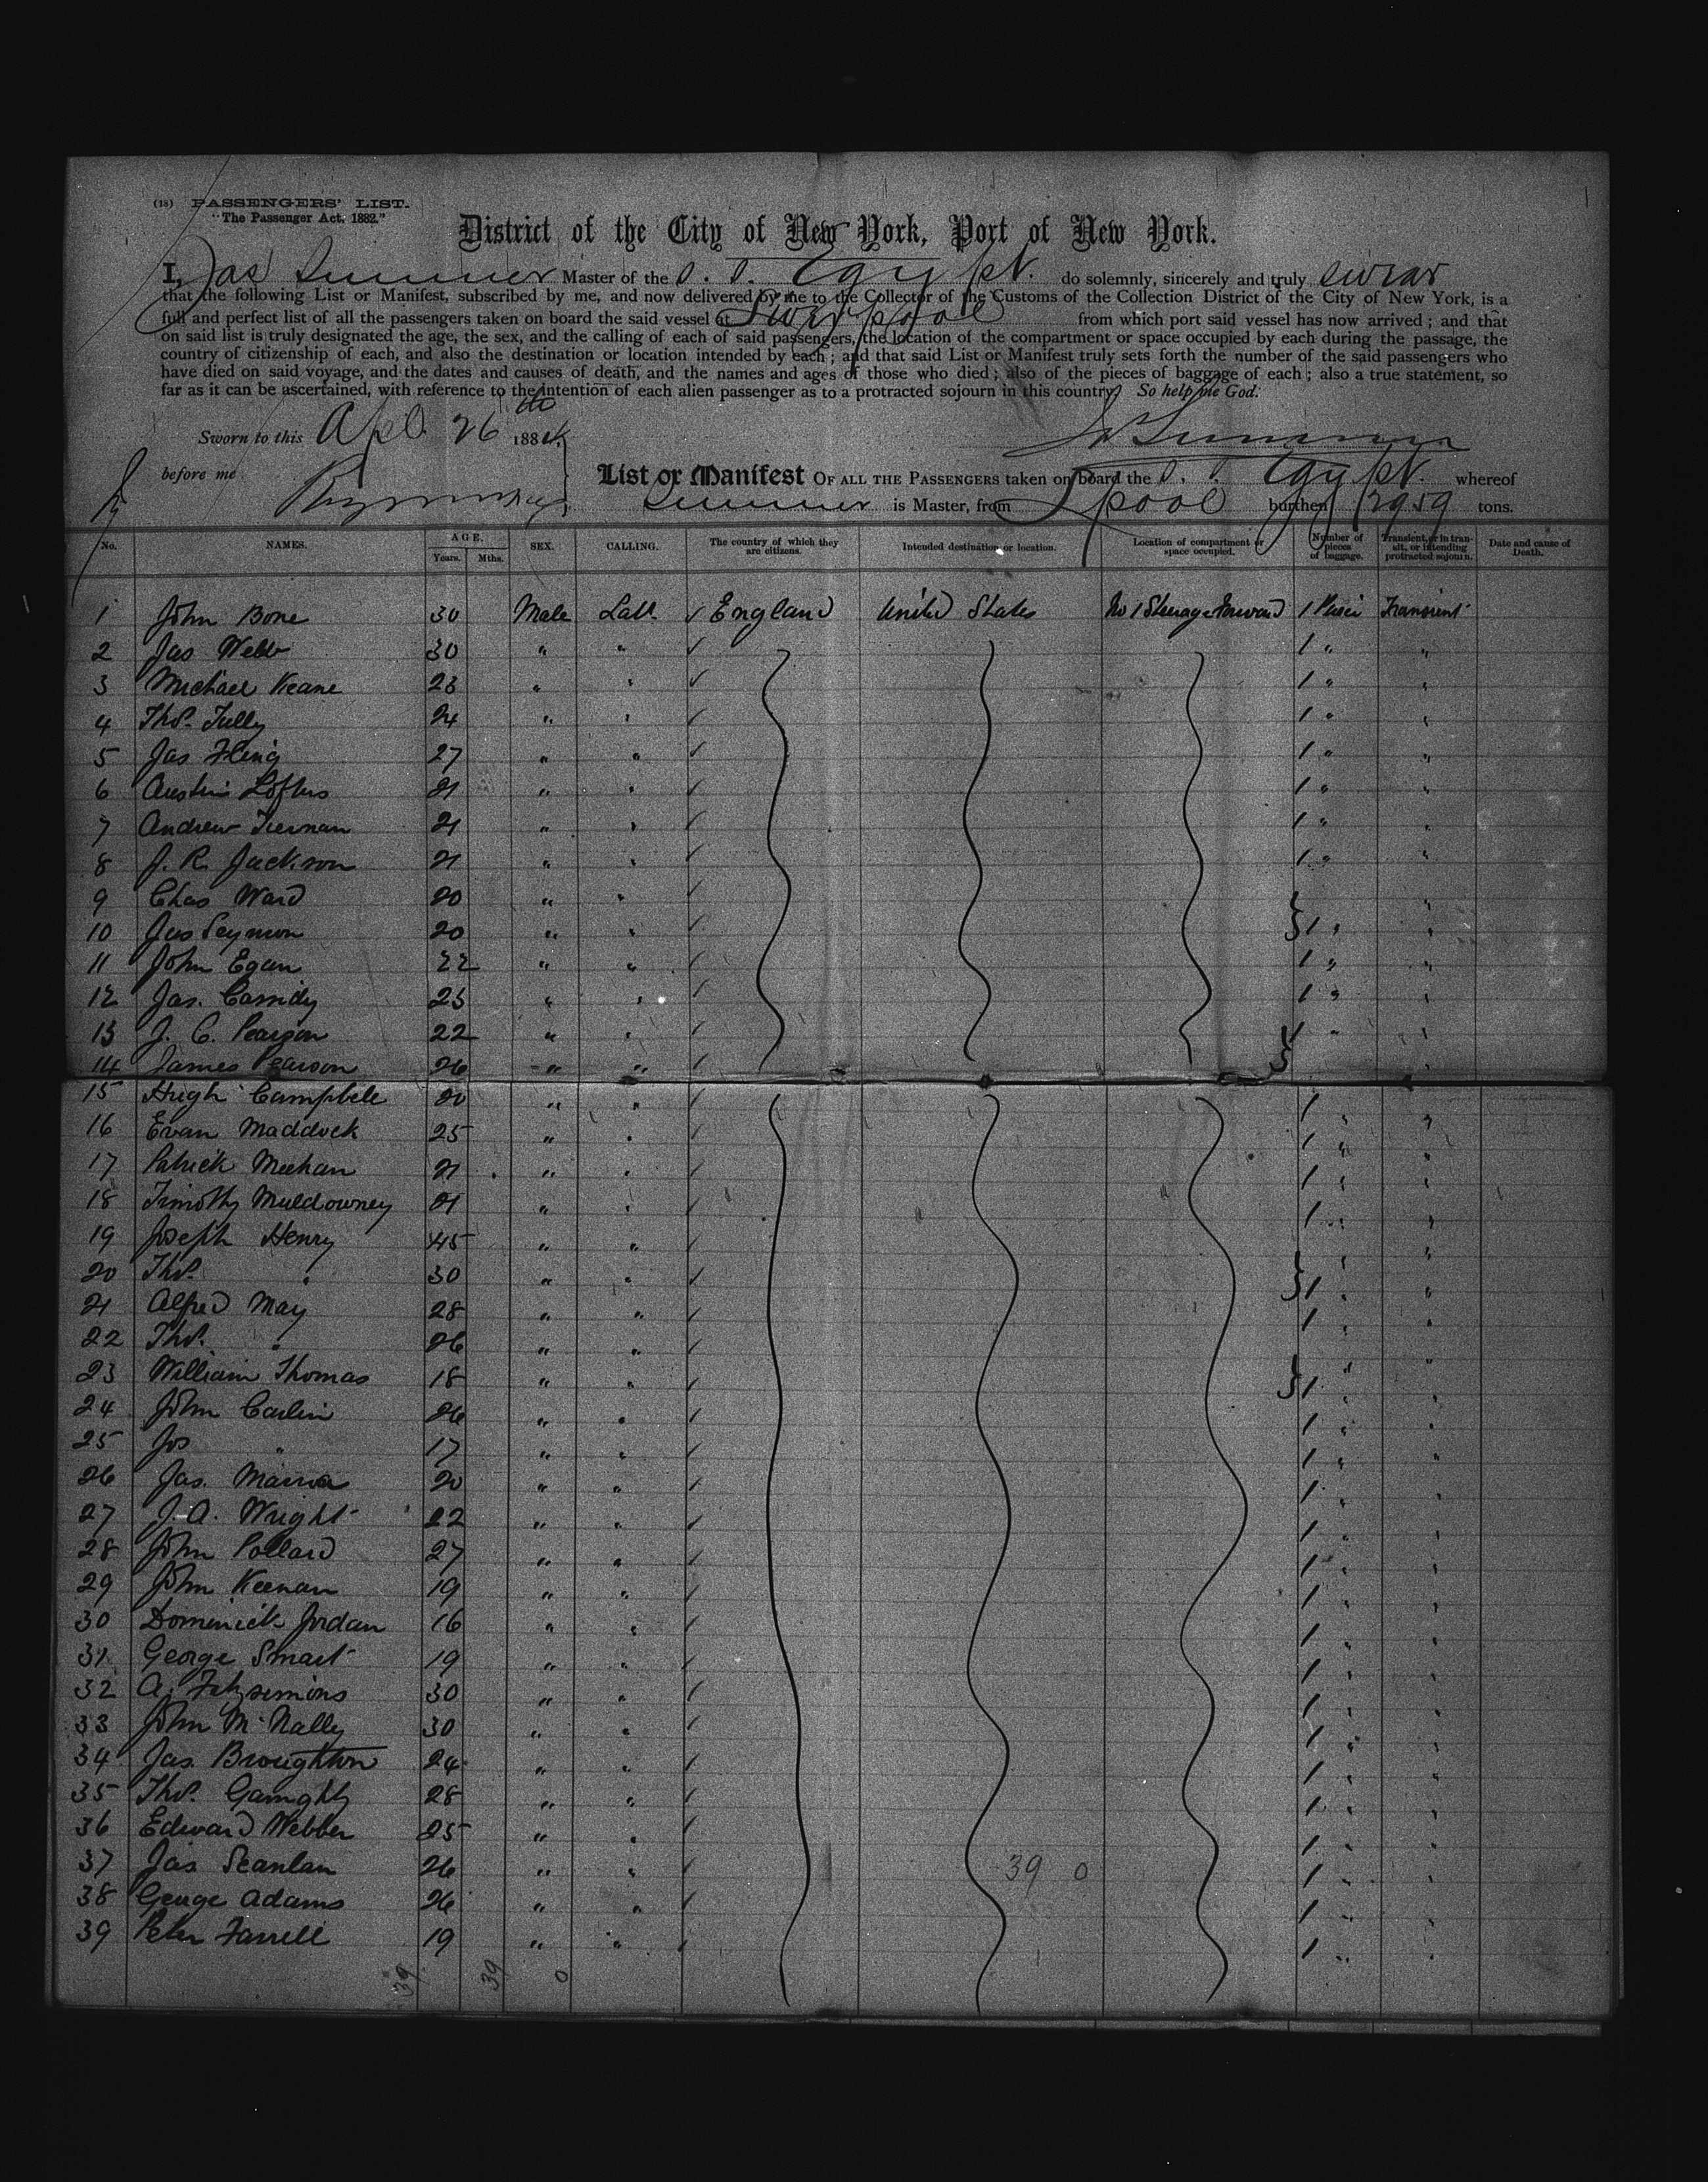 (18) PASSENGERS' LIST.
"The Passenger Act, 1882."
District of the City of New York, Port of New York.
I, Jas Sumner Master of the S. S. Egypt. do solemnly, sincerely and truly swear
that the following List or Manifest, subscribed by me, and now delivered by me to the Collector of the Customs of the Collection District of the City of New York, is a
full and perfect list of all the passengers taken on board the said vessel at Liverpool from which port said vessel has now arrived; and that
on said list is truly designated the age, the sex, and the calling of each of said passengers, the location of the compartment or space occupied by each during the passage, the
country of citizenship of each, and also the destination or location intended by each; and that said List or Manifest truly sets forth the number of the said passengers who
have died on said voyage, and the dates and causes of death, and the names and ages of those who died; also of the pieces of baggage of each; also a true statement, so
far as it can be ascertained, with reference to the intention of each alien passenger as to a protracted sojourn in this country. So help me God.
Sworn to this Apl. 26th 1884
before me
List or Manifest OF ALL THE PASSENGERS taken on board the S. S. Egypt. whereof
Sumner is Master, from Lpool burthen 2959 tons.
No. NAMES. AGE. Years. Mths. SEX. CALLING. The country of which they are citizens. Intended destination or location. Location of compartment or space occupied. Number of pieces of baggage. Transient, or in transit, or intending protracted sojourn. Date and cause of Death.
1 John Bone 30 Male Lab. England United States No 1 Steerage Forward 1 Piece Transient
2 Jas Webb 30 " " 1 " "
3 Michael Keane 23 " " 1 " "
4 Thos. Tully 24 " " 1 " "
5 Jas 27 " " 1 " "
6 Austin Loftus 21 " " 1 " "
7 Andrew Tiernan 21 " " 1 " "
8 J. R. Jackson 21 " " 1 " "
9 Chas Ward 20 " " "
10 Jas Seymour 20 " " 1 " "
11 John Egan 22 " " 1 " "
12 Jas. Cassidy 23 " " 1 " "
13 J. C. Pearson 22 " " 1 " "
14 James Pearson 26 " " "
15 Hugh Campbell 20 " " 1 " "
16 Evan Maddock 25 " " 1 " "
17 Patrick Meehan 21 " " 1 " "
18 Timothy Muldowney 21 " " 1 " "
19 Joseph Henry 45 " " " "
20 Thos. " 30 " " 1 " "
21 Alfred May 28 " " 1 " "
22 Thos. " 26 " " " "
23 William Thomas 18 " " 1 " "
24 John Carlin 26 " " 1 " "
25 Jos " 17 " " 1 " "
26 Jas. 20 " " 1 " "
27 J. A. Wright 22 " " 1 " "
28 John Pollard 27 " " 1 " "
29 John Keenan 19 " " 1 " "
30 Dominick Jordan 16 " " 1 " "
31 George Smart 19 " " 1 " "
32 A. Fitzsimons 30 " " 1 " "
33 John McNally 30 " " 1 " "
34 Jas. Broughton 24 " " 1 " "
35 Thos. 28 " " 1 " "
36 Edward Webber 25 " " 1 " "
37 Jas Scanlan 26 " " 39 0 1 " "
38 George Adams 26 " " 1 " "
39 Peter Farrell 19 " " 1 " "
39 39 0